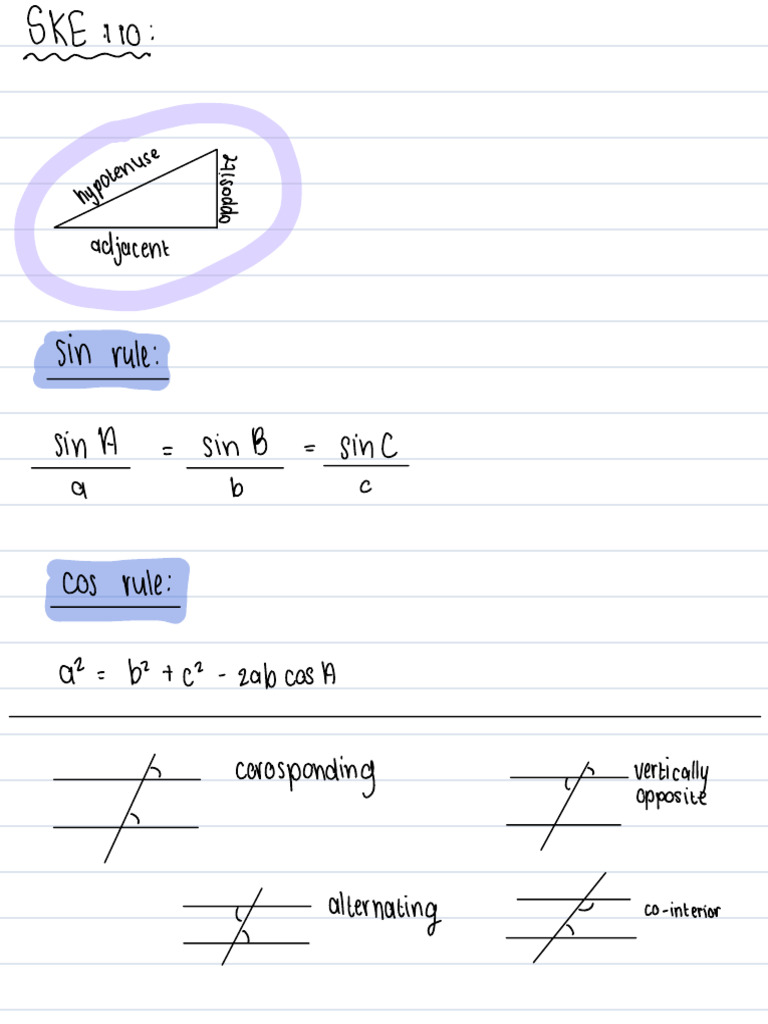 SKE 110:
hypotenuse
opposite
adjacent
sin rule:
sin A / a = sin B / b = sin C / c
cos rule:
a² = b² + c² - 2ab cos A
corosponding
vertically
opposite
alternating
co-interior